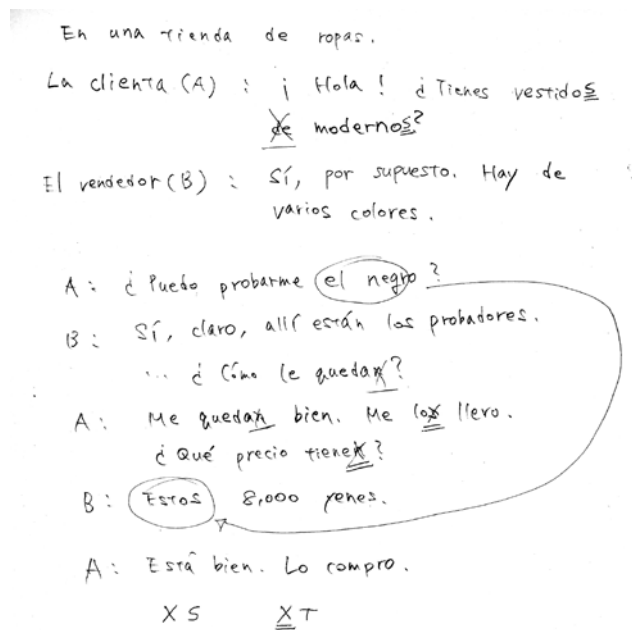 En una tienda de ropas.
La clienta (A) : ¡Hola! ¿Tienes vestidos
de modernos?
El vendedor (B) : Sí, por supuesto. Hay de
varios colores.
A : ¿Puedo probarme el negro?
B : Sí, claro, allí están los probadores.
... ¿Cómo le quedan?
A : Me quedan bien. Me los llevo.
¿Qué precio tienen?
B : Estos 8,000 yenes.
A : Está bien. Lo compro.
X S X T